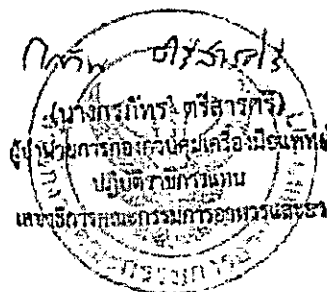 (นางกรภัทร ตรีสารศรี)
ผู้อำนวยการกองควบคุมเครื่องมือแพทย์
ปฏิบัติราชการแทน
เลขาธิการคณะกรรมการอาหารและยา